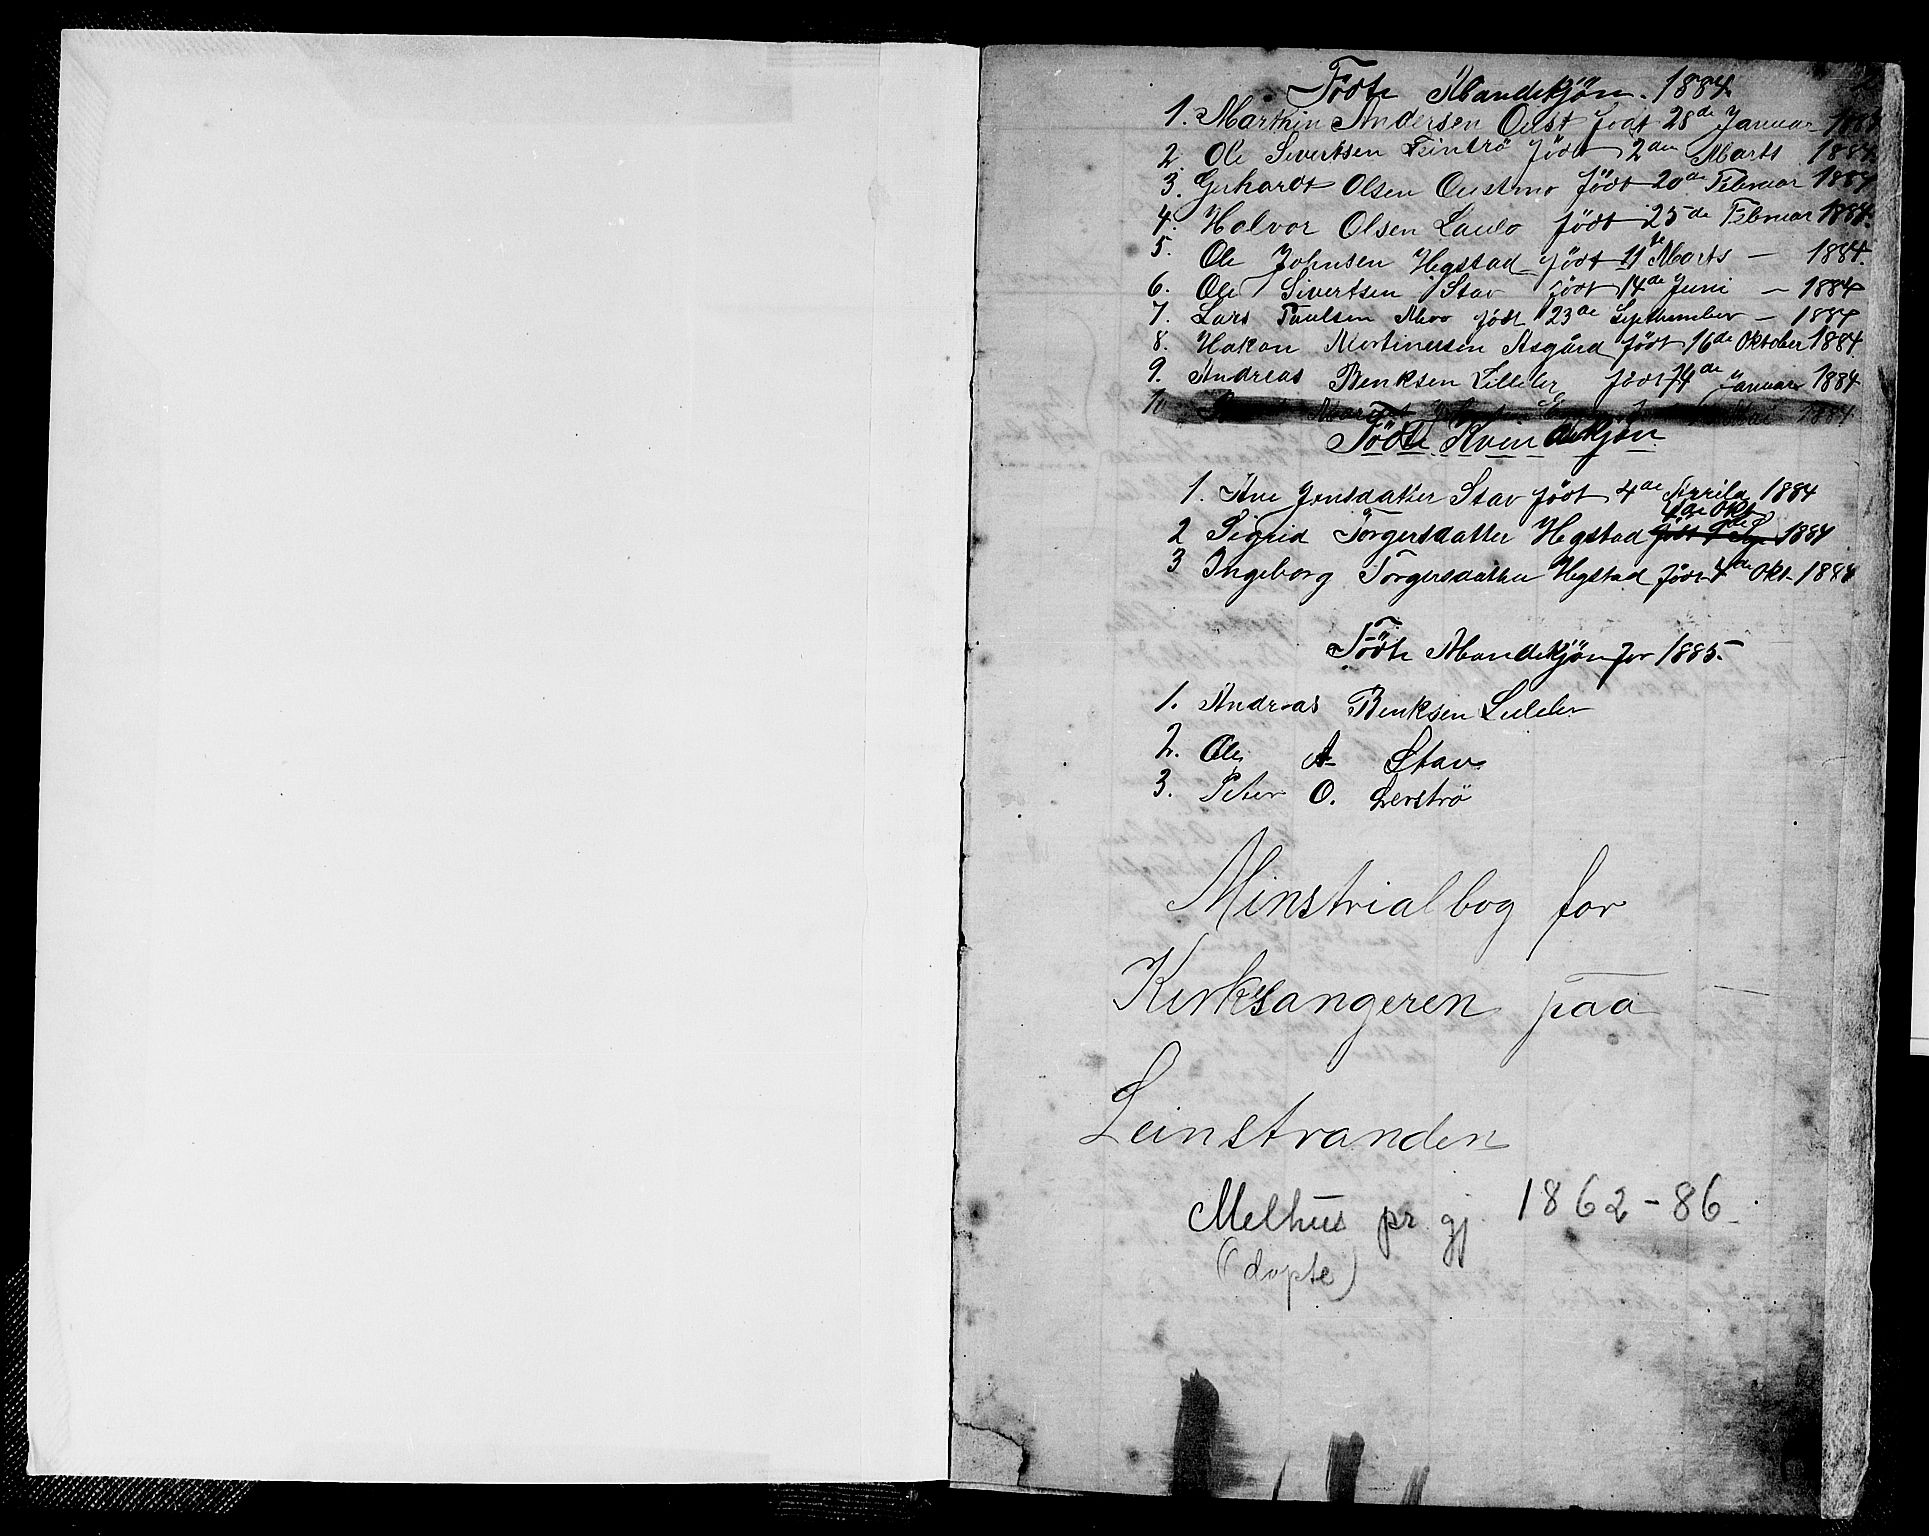 Födte Mandekjön. 1884.
1. Marthin Andersen Oust födt 28de Januar
2. Ole Sivertsen födt 2den Marts 1884.
3. Gerhardt Olsen Oustmo födt 20de Februar 1884
4. Halvor Olsen Laulo födt 25de Februar 1884.
5. Ole Johnsen Hegstad födt 11te Marts – 1884.
6. Ole Sivertsen Stav födt 14de Juni – 1884
7. Lars Paulsen Moo födt 23de September – 1884
8. Hakon Martinusen Asgård födt 16de Oktober 1884
9. Andreas Benksen Lilleler födt 14de Januar 1884
10 1884
Födte Kvindekjön
1. Ane Jensdatter Stav födt 4de Aprild 1884
4de Okt
2 Sigrid Torgersdatter Hegstad födt 1884
3 Ingeborg Torgersdatter Hegstad födt 4de Okt. 1884
Födte Mandekjön for 1885.
1. Andreas Benksen Lileler
2. Ole A Stav.
3. Peter O. Lerströ
Minstrialbog for
Kirksangeren paa
Leinstranden
Melhus pr. gj. 1862-86
(døpte)